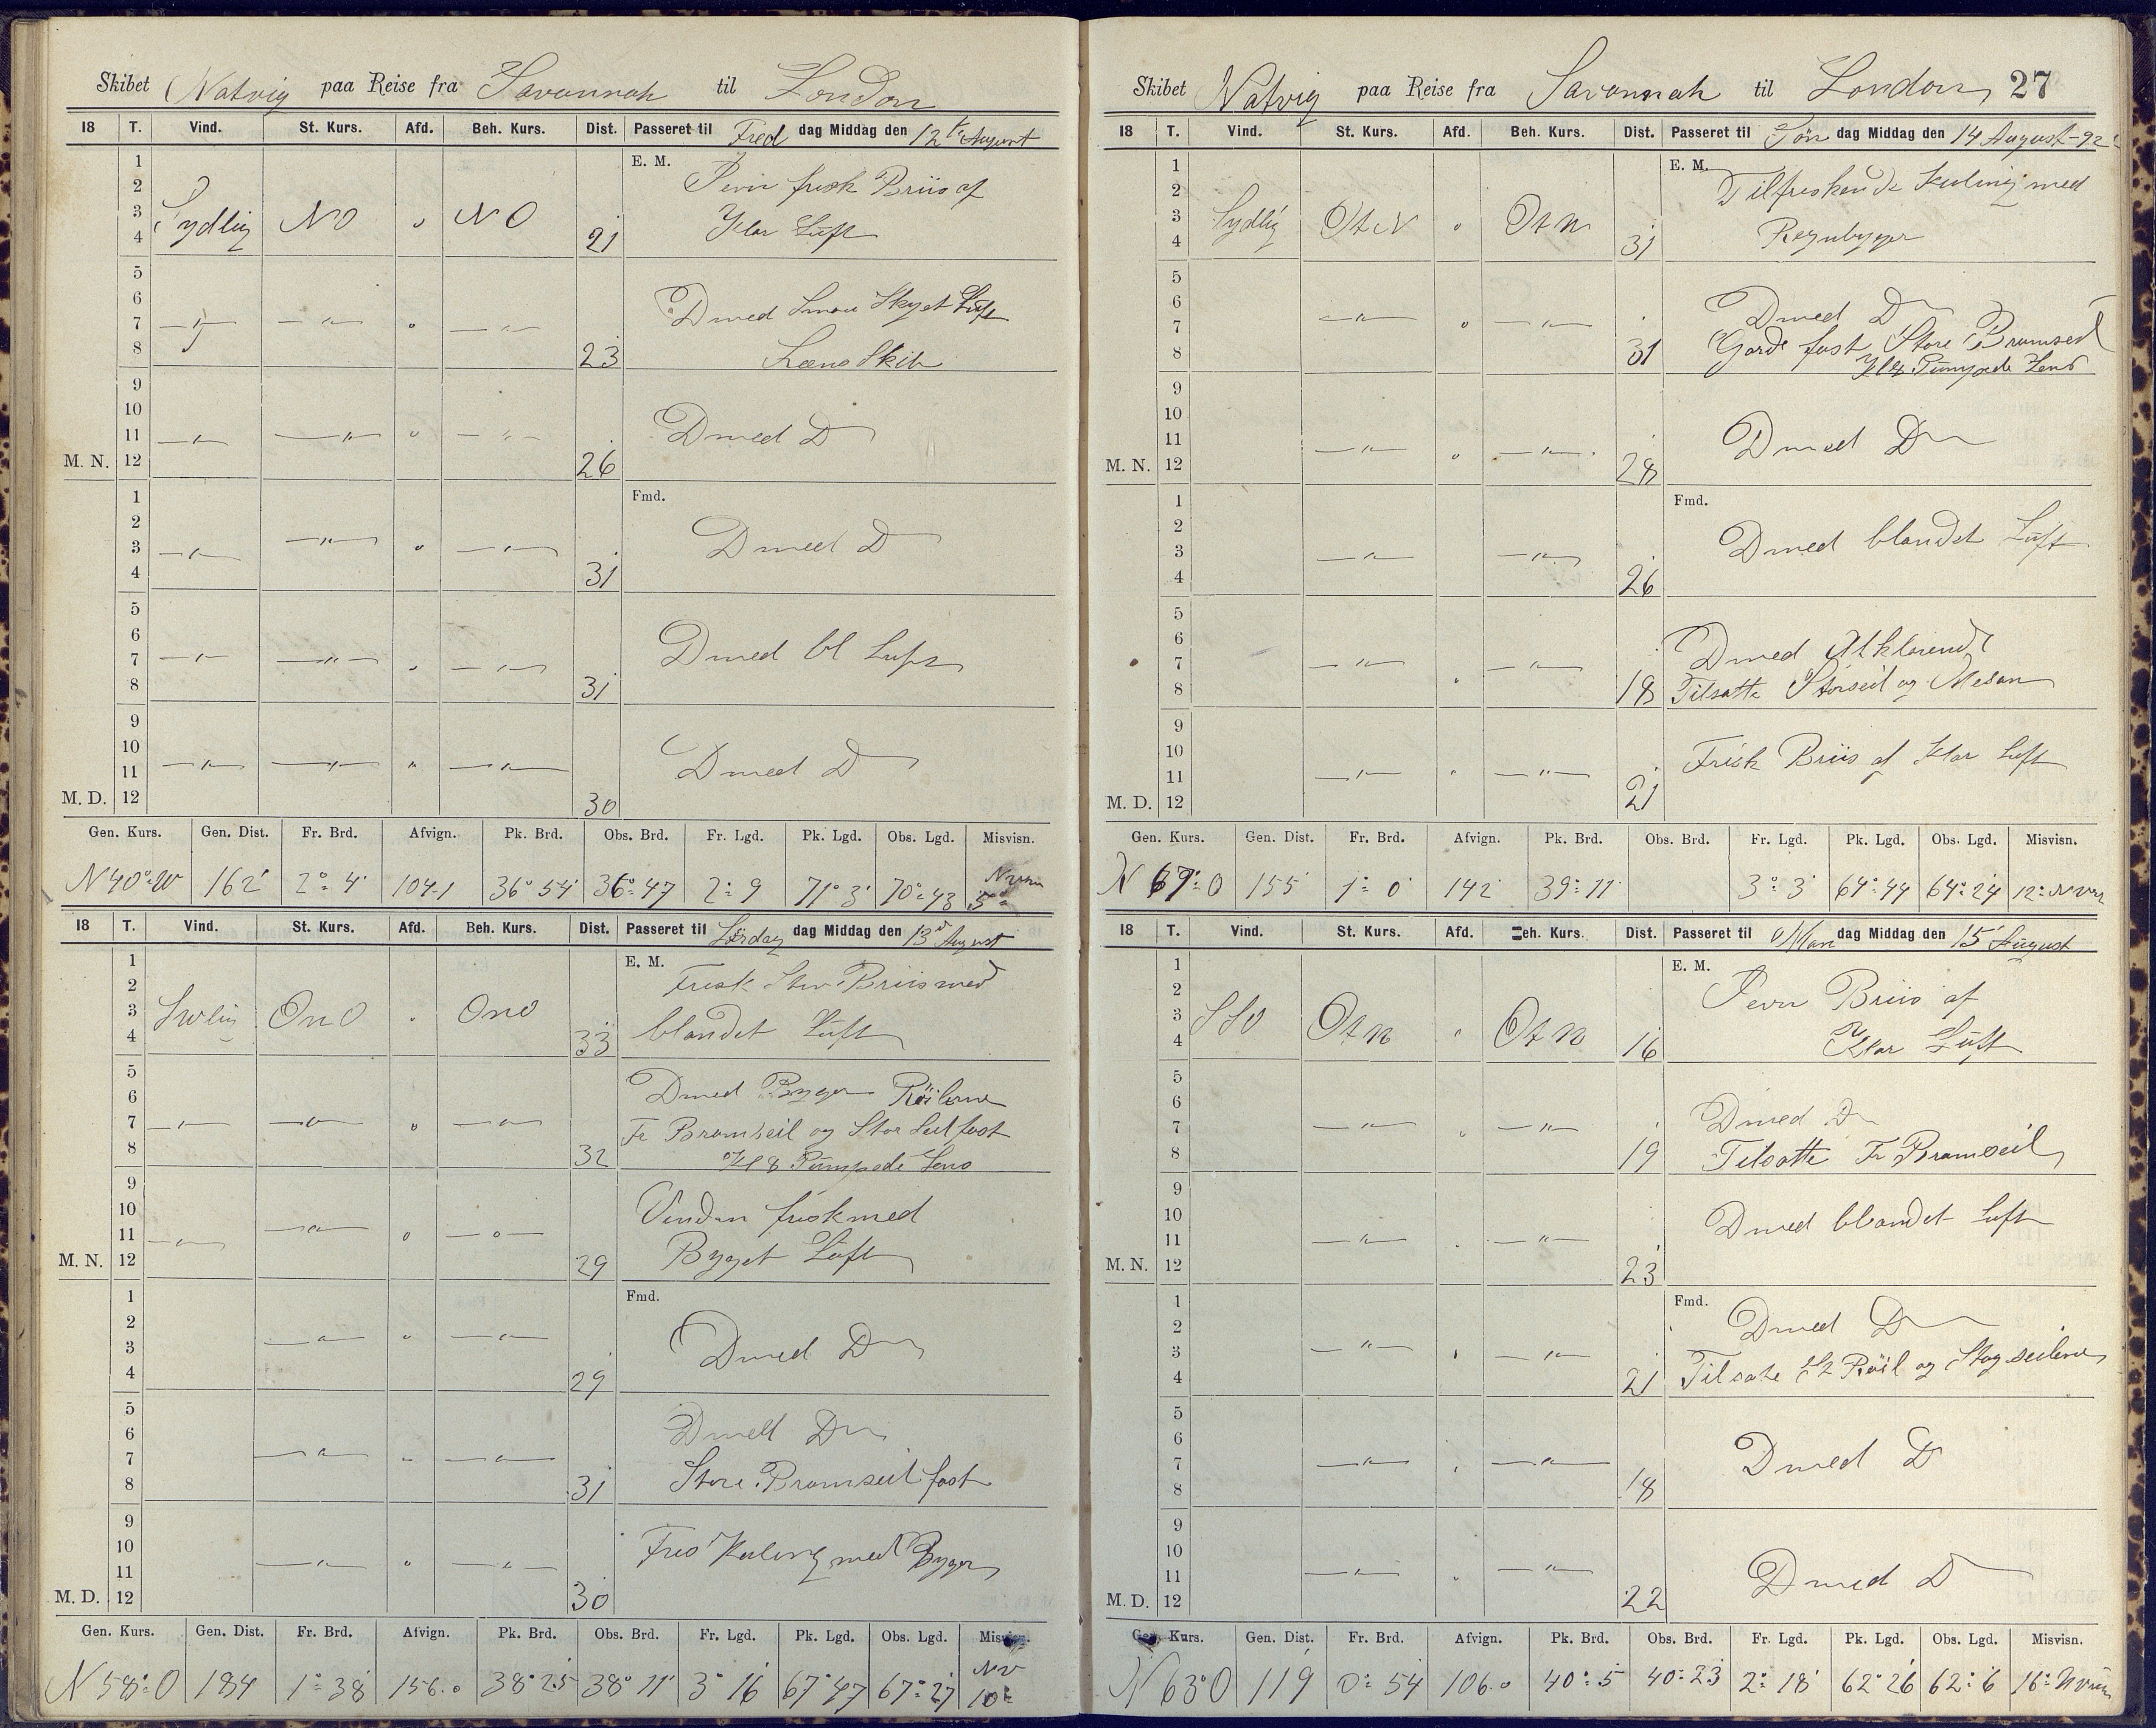 Skibet Natvig paa Reise fra Savannah til London
18 T. Vind. St. Kurs. Afd. Beh. Kurs. Dist. Passeret til Fred dag Middag den 12te August
1 E. M.
2 Jevn frisk Briis af
3 Sydlig NO " NO Klar Luft
4 21
5
6 D med Smaa Skyet Luft
7 —"— —"— " —"—
8 23 Læns Skib
9
10
11 —"— —"— " —"— D med D
M. N. 12 26
1 Fmd.
2
3 —"— —"— " —"— D med D
4 31
5
6
7 —"— —"— " —"— D med bl Luft
8 31
9
10
11 —"— —"— " —"— D med D
M. D. 12 30
Gen. Kurs. Gen. Dist. Fr. Brd. Afvign. Pk. Brd. Obs. Brd. Fr. Lgd. Pk. Lgd. Obs. Lgd. Misvisn.
162' 2° 4' 104.1 36° 54' 36° 47 2° 9 71° 3' 70° 43 5°
18 T. Vind. St. Kurs. Afd. Beh. Kurs. Dist. Passeret til Lördag dag Middag den 13d August
1 E. M.
2 Frisk Briis med
3 ONO " ONO blandet Luft
4 33
5
6 D med Byger Röilerne
7 —"— —"— " —"— Fr Bramseil og Stor Seil fast
8 32 Kl 8 Pumpede Lens
9
10 Vinden frisk med
11 —"— —"— " —"— Byget Luft
M. N. 12 29
1 Fmd.
2
3 —"— " —"— D med D
4 29
5
6 D med D
7 —"— " —"—
8 31 Store Bramseil fast
9
10
11 —"— " —"— Kuling med Byger
M. D. 12 30
Gen. Kurs. Gen. Dist. Fr. Brd. Afvign. Pk. Brd. Obs. Brd. Fr. Lgd. Pk. Lgd. Obs. Lgd. Misvisn.
N 58° O 184 1° 38' 156.0 38° 25 38° 11' 3° 16 67° 47 67° 27 NV 10°
Skibet Natvig paa Reise fra Savannah til London 27
18 T. Vind. St. Kurs. Afd. Beh. Kurs. Dist. Passeret til Sön dag Middag den 14 August-92
1 E. M.
2 Tilfriskende Kuling med
3 Sydlig OtN " OtN Regnbyger
4 31
5
6 D med D
7 —"— " —"— Gjorde fast Store Bramseil
8 31 Kl 8 Pumpede Lens
9
10
11 —"— " —"— D med D
M. N. 12 28
1 Fmd.
2
3 —"— —"— D med blandet Luft
4 26
5
6 D med Afklarende
7 —"— " —"—
8 18 Tilsatte Storseil og Mesan
9
10 Frisk Briis af Klar Luft
11 —"— " —"—
M. D. 12 21
Gen. Kurs. Gen. Dist. Fr. Brd. Afvign. Pk. Brd. Obs. Brd. Fr. Lgd. Pk. Lgd. Obs. Lgd. Misvisn.
N 67° O 155 1° 0' 142 39° 11 3° 3' 64° 44 64° 24 12°
18 T. Vind. St. Kurs. Afd. Beh. Kurs. Dist. Passeret til Man dag Middag den 15 August
1 E. M.
2 Jevn Briis af
3 SSV OtN " OtN Klar Luft
4 16
5
6 D med D
7 —"— " —"—
8 19 Tilsatte Fr Bramseil
9
10 D med blandet Luft
11 —"— " —"—
M. N. 12 23
1 Fmd.
2 D med D
3 —"— " —"—
4 21 Tilsatte St Röil og Stagseilene
5
6
7 —"— " —"— D med D
8 18
9
10
11 —"— " —"— D med D
M. D. 12 22
Gen. Kurs. Gen. Dist. Fr. Brd. Afvign. Pk. Brd. Obs. Brd. Fr. Lgd. Pk. Lgd. Obs. Lgd. Misvisn.
N 63° O 119 0° 54 106.0 40° 5 40° 23 2° 18' 62° 26 62° 6 16°